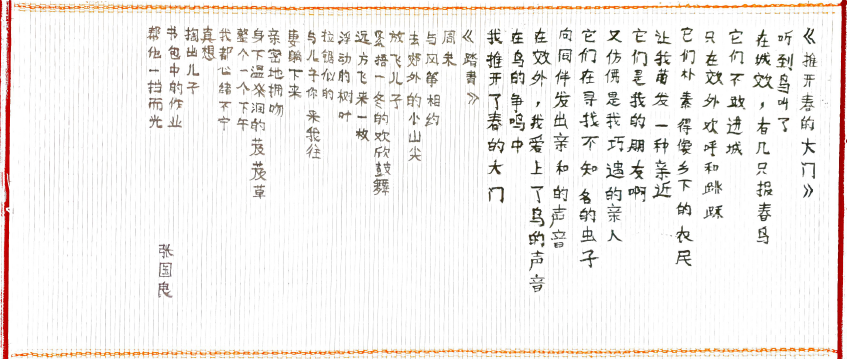 《推开春的大门》
听到鸟叫了
在城效，有几只报春鸟
它们不敢进城
只在效外欢呼和跳跃
它们朴素得像乡下的农民
让我萌发一种亲近
它们是我的朋友啊
又仿佛是我巧遇的亲人
它们在寻找不知名的虫子
向同伴发出亲和的声音
在效外，我爱上了鸟的声音
在鸟的争鸣中
我推开了春的大门
《踏青》
周末
与风筝相约
去郊外的小山尖
放飞儿子
紧捂一冬的欢欣鼓舞
远方飞来一枚
浮动的树叶
拉锯似的
与儿子你来我往
要躺下来
亲密地拥吻
身下温柔润的茂茂草
整个一个下午
我都心绪不宁
真想
掏出儿子
书包中的作业
帮他一挡而光
张国良